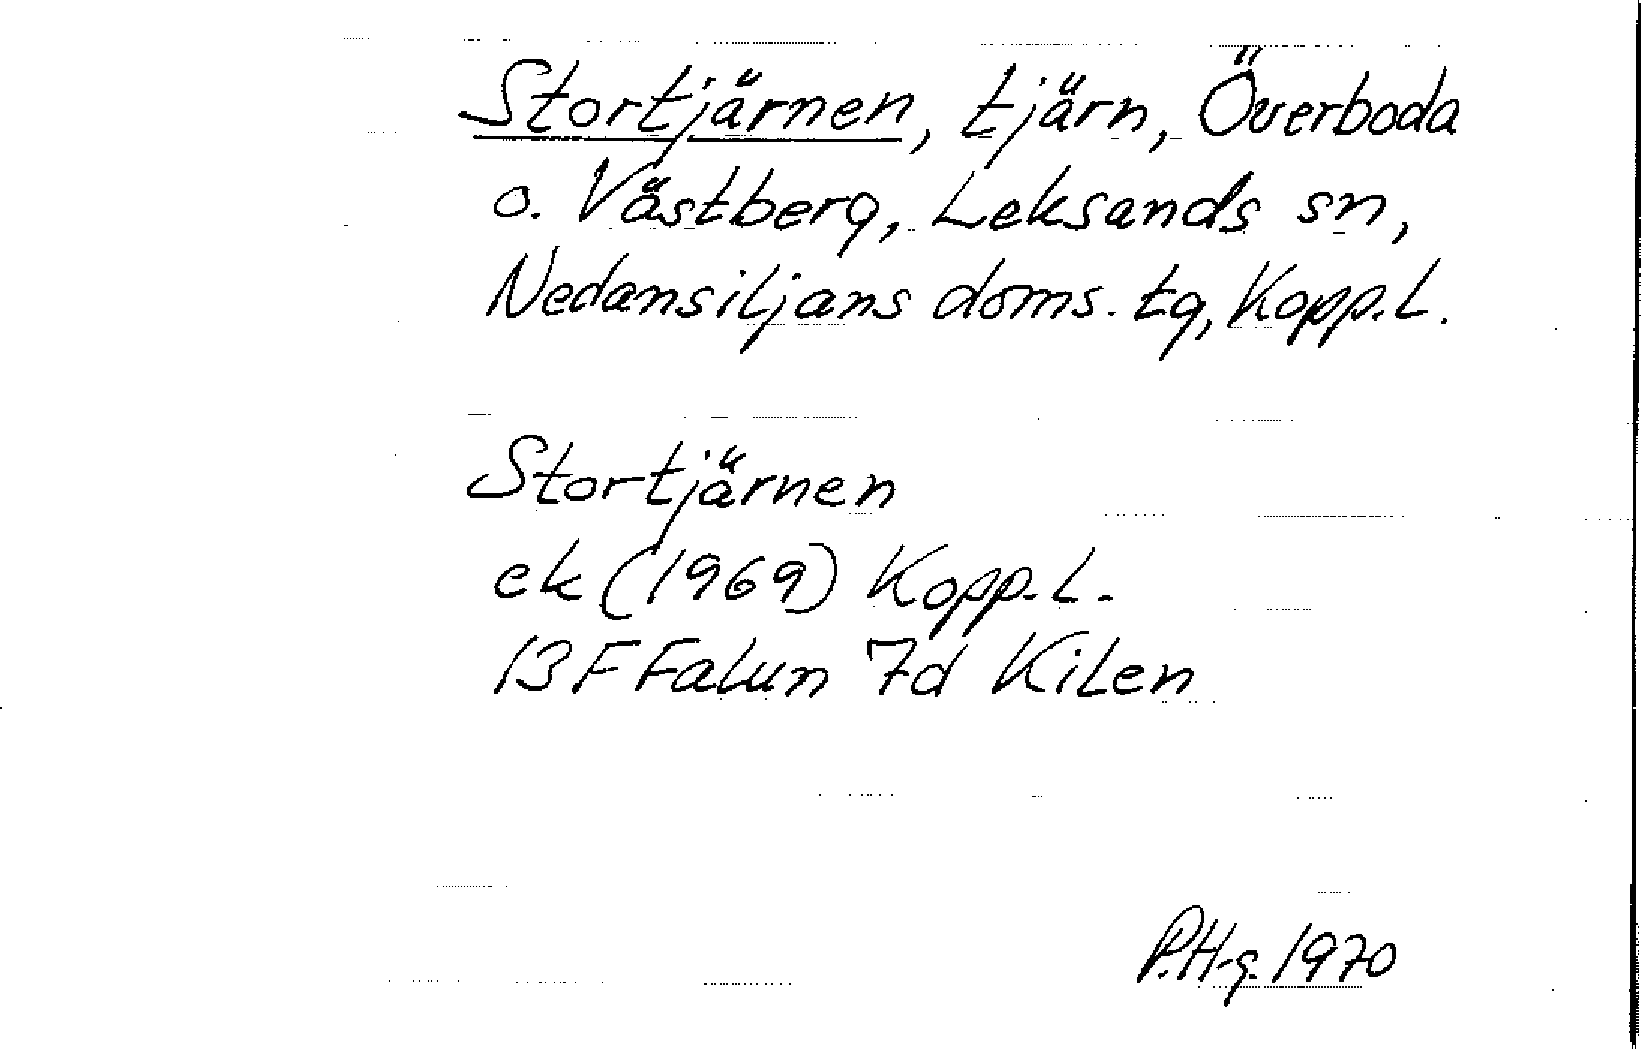 Stortjärnen, tjärn, Överboda
o. Västberg, Leksands sn,
Nedansiljans doms. tg, Kopp. L.
Stortjärnen
ek (1969) Kopp. L.
13 F Falun 7d Kilen
P.H-g. 1970